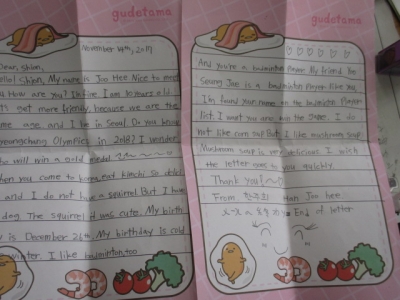 gudetama
November 14th, 2017
Dear, Shion.
Hello! Shion, My name is Joo Hee Nice to meet
you How are you? I'm fine I am 10 years old
get more friendly because we are the
same age. and I live in Seoul. Do you know
Pyeongchang Olympics in 2018? I wonder
who will win a gold medal
When you came to Korea eat kimchi So delici
and I do not have a squirrel But I have
dog. The squirrel was cute. My birth
is December 26th. My birthday is cold
winter. I like badminton too
gudetama
And you're a badminton player My friend
Seung Jae is a badminton player like you,
I'm found your name on the badminton player
list I want you win the game. I do
not like corn soup But I like mushroom soup.
Mushroom soup is very delicious I wish
the letter goes to you quickly.
Thank you!
From Han Joo hee
End of letter